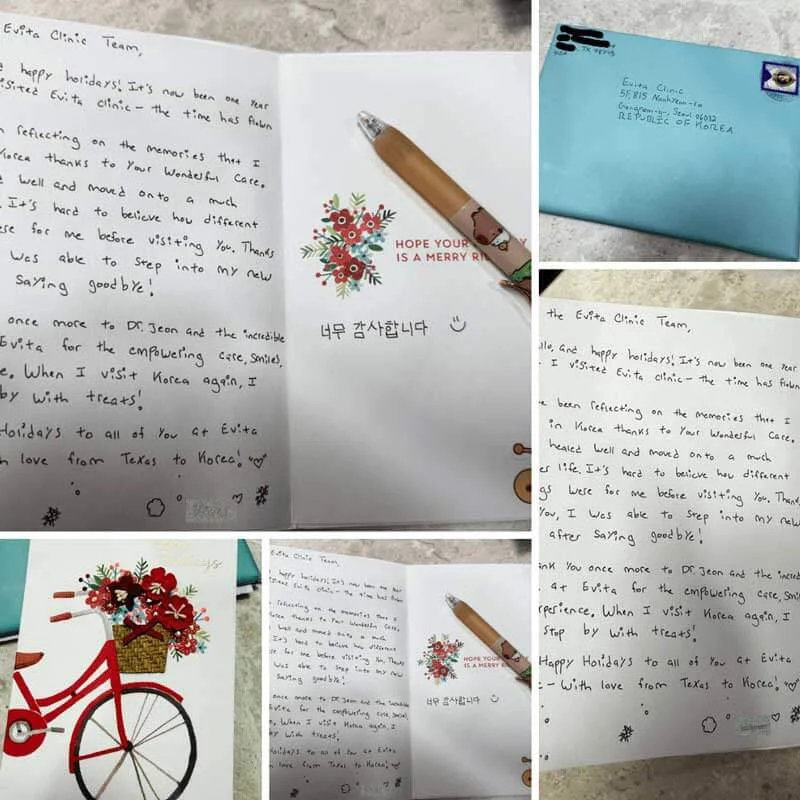 Evita Clinic Team,
happy holidays! It's now been one year
isited Evita clinic – the time has flown
reflecting on the memories that I
Korea thanks to your wonderful care.
well and moved onto a much
It's hard to believe how different
ere for me before visiting you. Thanks
was able to step into my new
saying goodbye!
once more to Dr. Jeon and the incredible
Evita for the empowering care, smiles,
e. When I visit Korea again, I
by with treats!
Holidays to all of you at Evita
h love from Texas to Korea!
HOPE YOUR
IS A MERRY RI
너무 감사합니다
TX
Evita Clinic
5F, 815 Nonhyeon-ro
Gangnam-gu, Seoul 06032
REPUBLIC OF KOREA
the Evita Clinic Team,
llo, and happy holidays! It's now been one year
I visited Evita clinic – the time has flown
ve been reflecting on the memories that I
in Korea thanks to your wonderful care.
healed well and moved onto a much
er life. It's hard to believe how different
gs were for me before visiting you. Thank
you, I was able to step into my new
after saying goodbye!
ank you once more to Dr. Jeon and the incred
at Evita for the empowering care, smil
xperience. When I visit Korea again, I
stop by with treats!
Happy Holidays to all of you at Evita
– with love from Texas to Korea!
Evita Clinic Team,
happy holidays! It's now been one year
isited Evita clinic – the time has flown
reflecting on the memories that I
Korea thanks to your wonderful care.
well and moved onto a much
It's hard to believe how different
ere for me before visiting you. Thanks
was able to step into my new
saying goodbye!
once more to Dr. Jeon and the incredible
Evita for the empowering care, smiles,
e. When I visit Korea again, I
by with treats!
Holidays to all of you at Evita
h love from Texas to Korea!
HOPE YOUR
IS A MERRY R
너무 감사합니다